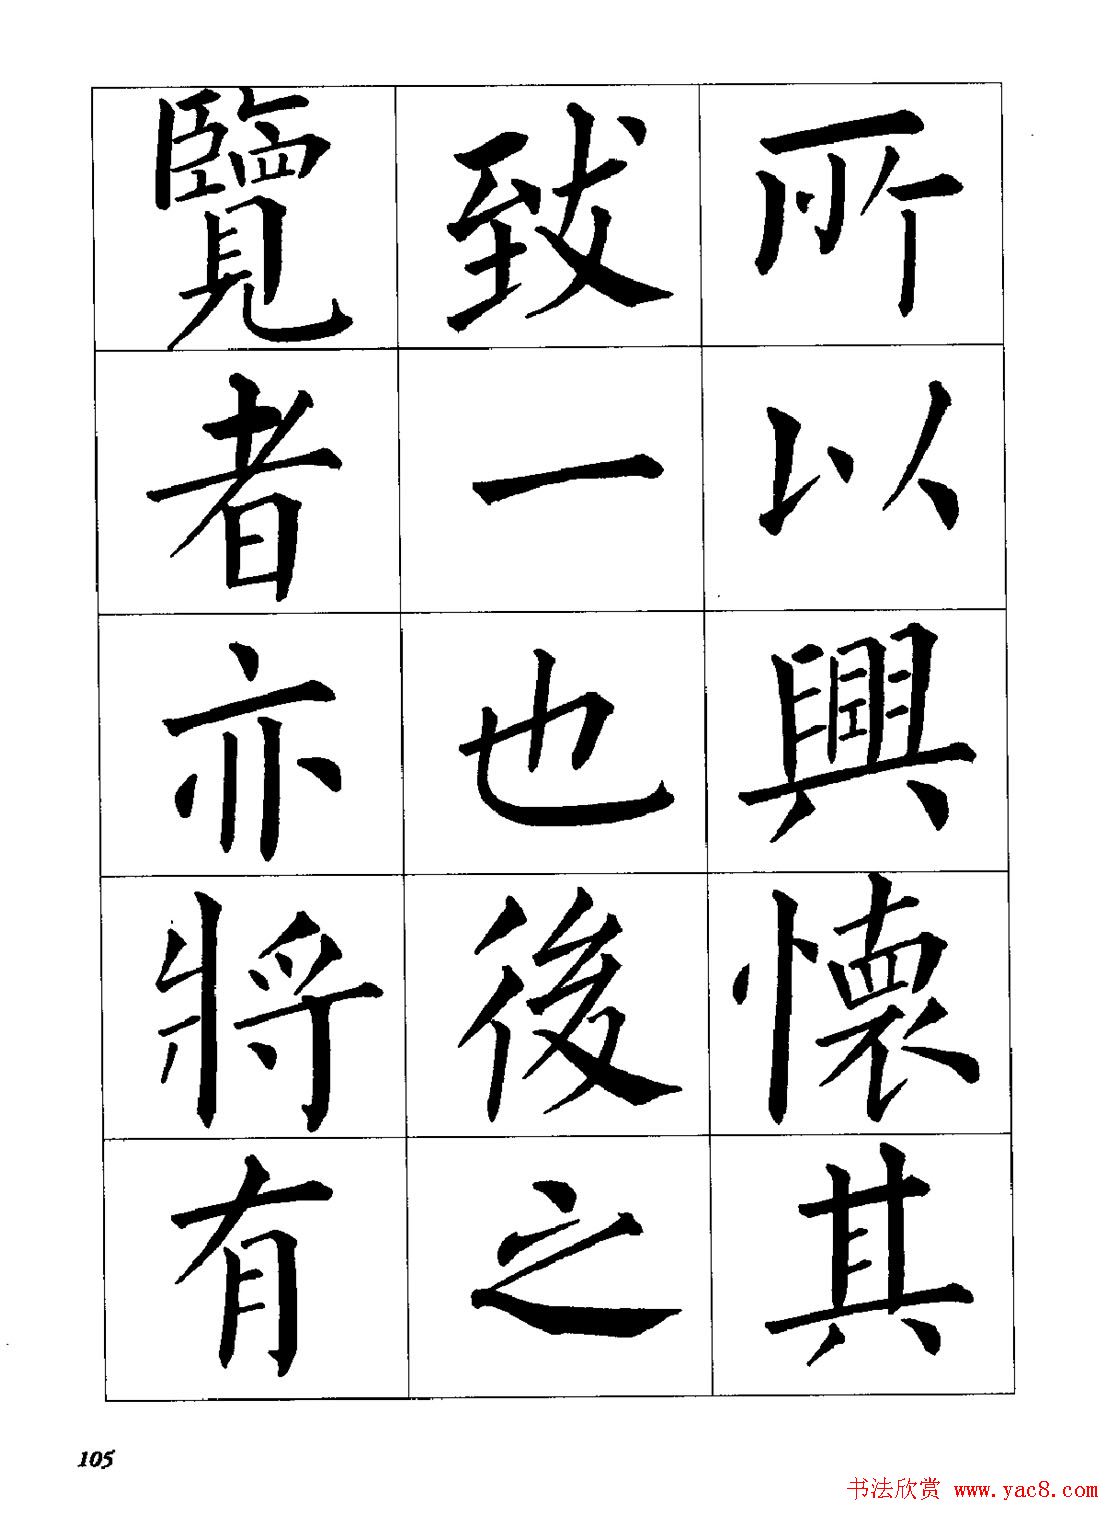 所以興懷其
致一也後之
覽者亦將有
105
书法欣赏 www.yac8.com